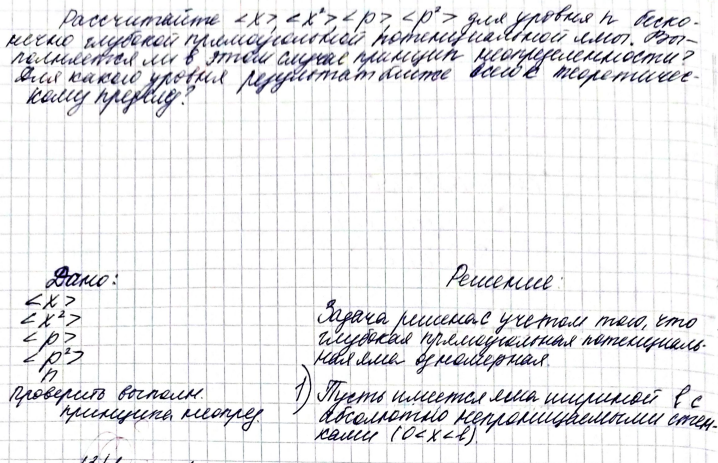 Рассчитайте <x>, <x²> <p>, <p²> для уровня n беско-
нечно глубокой прямоугольной потенциальной ямы. Вы-
полняется ли в этом случае принцип неопределенности?
Для какого уровня результат ближе всего к теоретичес-
кому пределу?
Дано:
<x>
<x²>
<p>
<p²>
n
Проверить выполн.
принципа неопред.
Решение:
Задача решена с учетом того, что
глубокая прямоугольная потенциаль-
ная яма одномерная.
1) Пусть имеется яма шириной l с
абсолютно непроницаемыми стен-
ками (0<x<l)